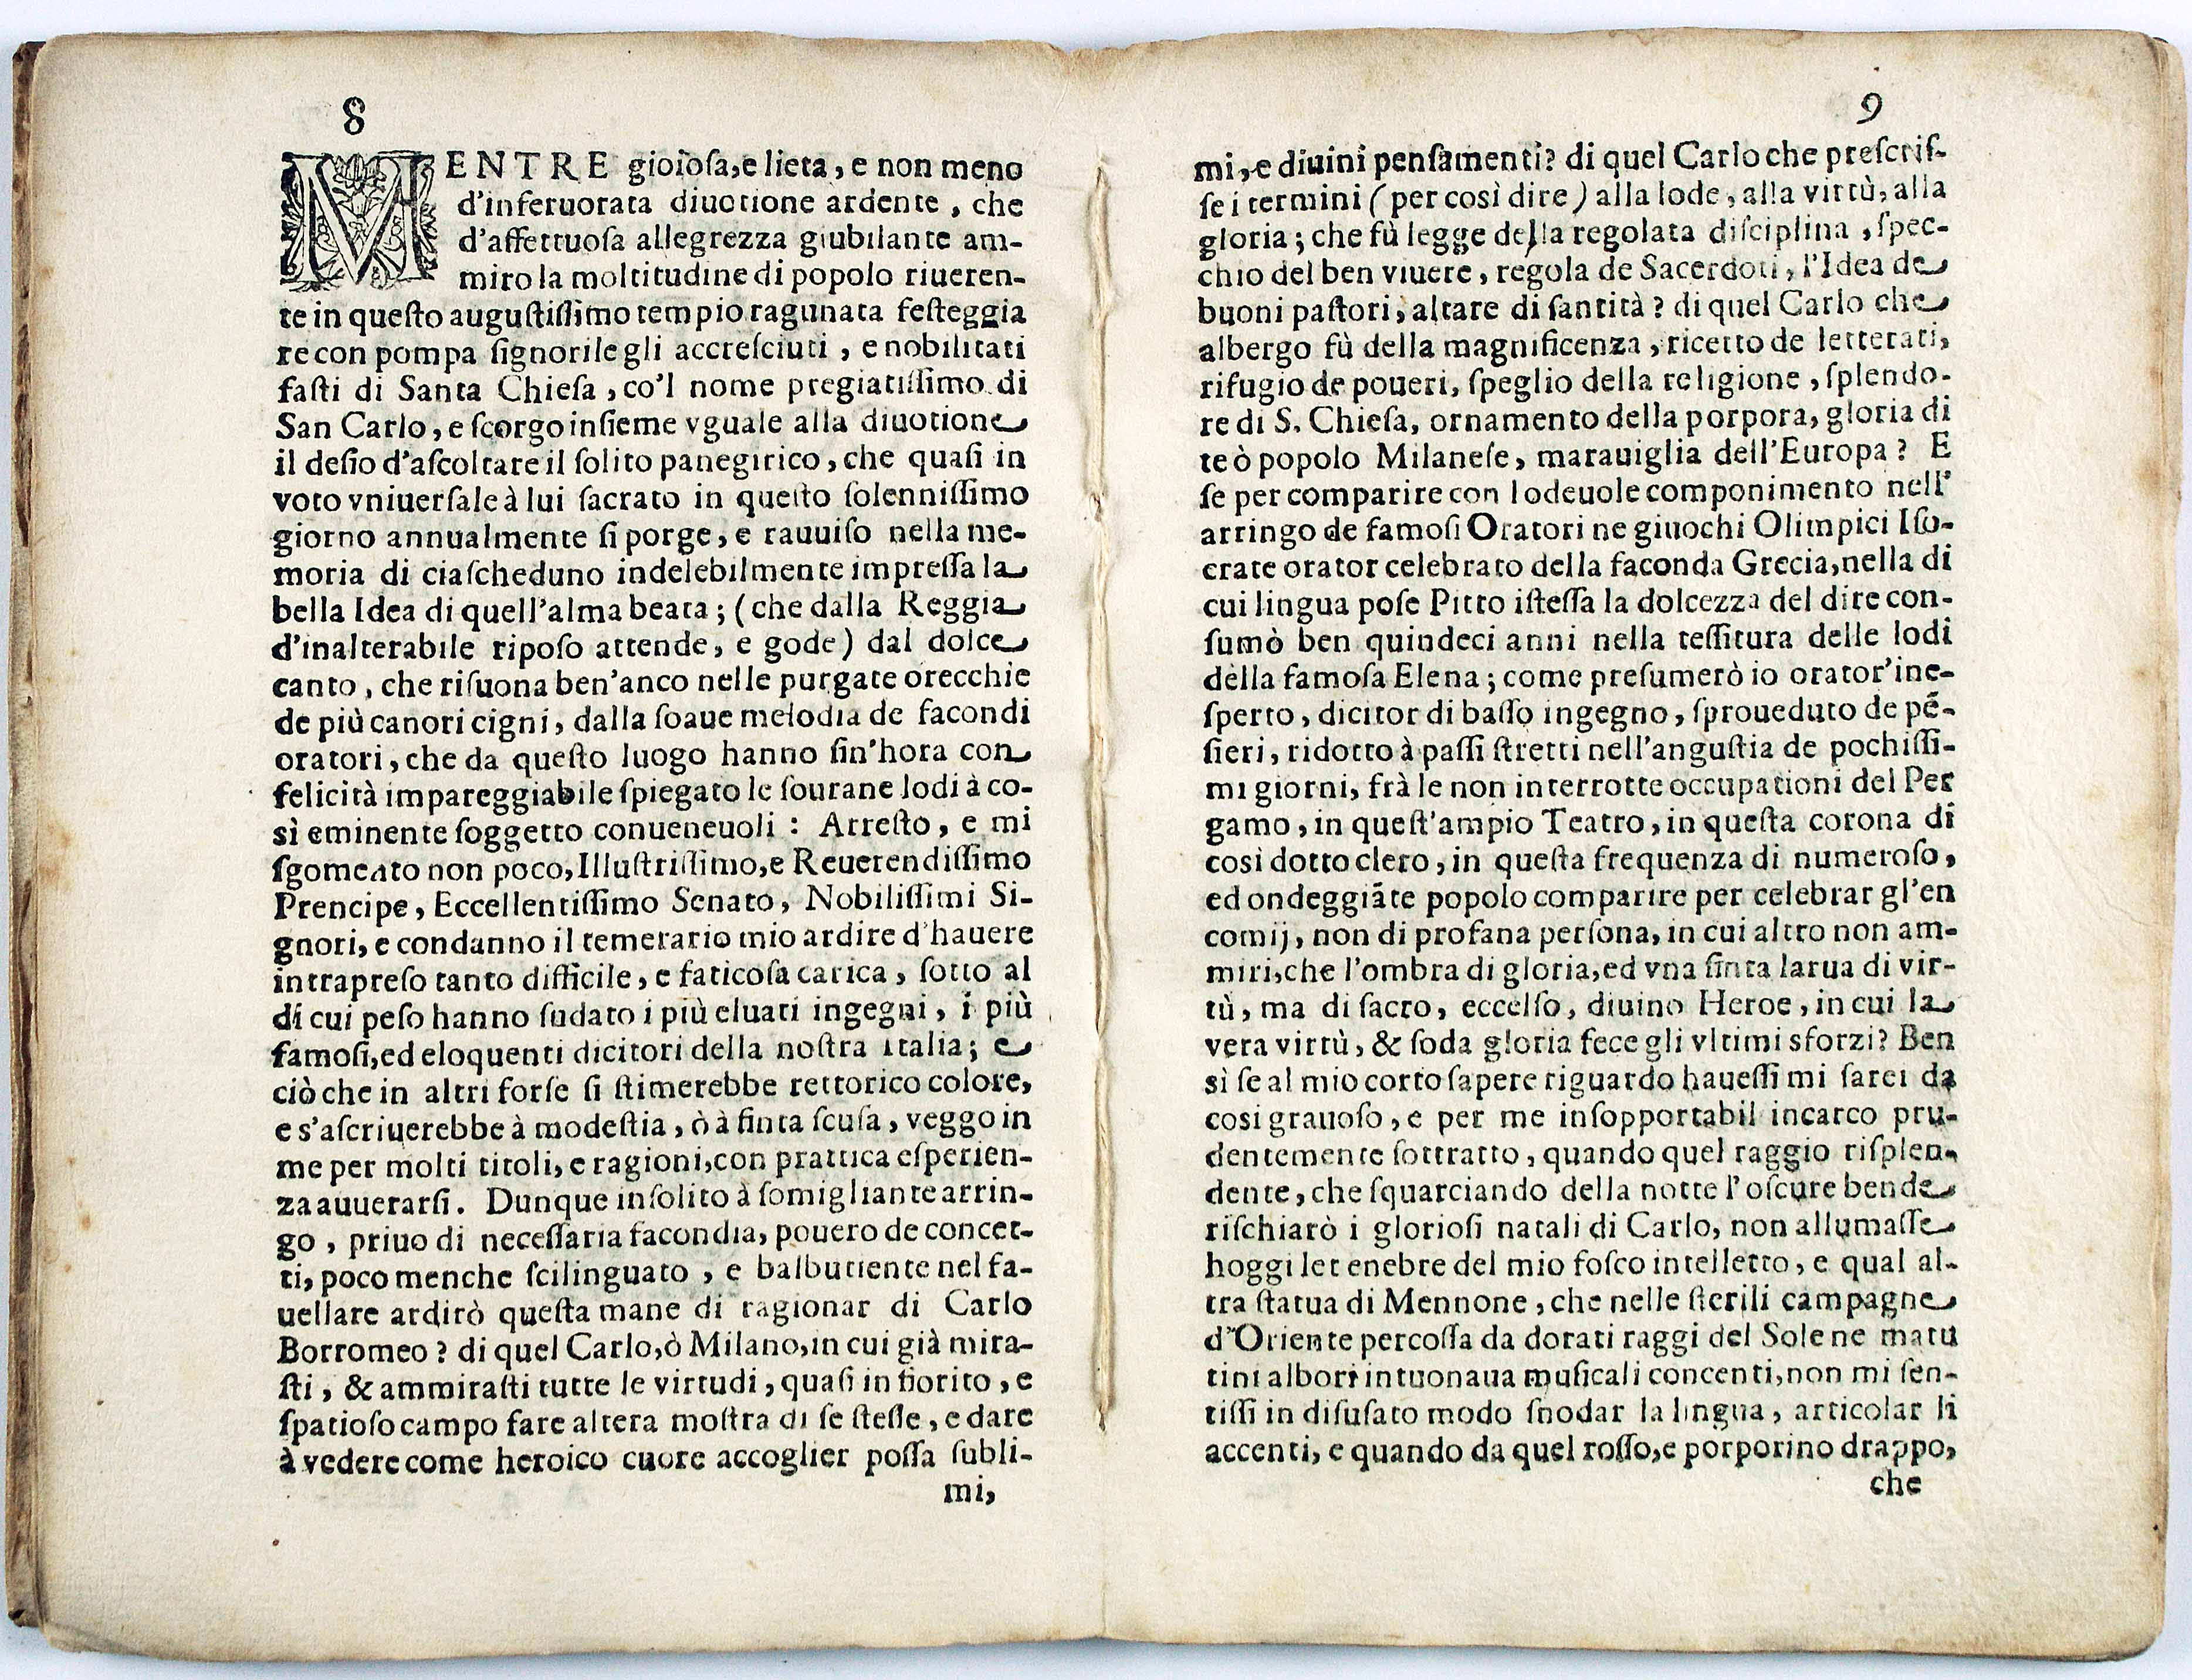 8
MENTRE gioiosa, e lieta, e non meno
d'inferuorata diuotione ardente, che
d'affettuosa allegrezza giubilante am-
miro la moltitudine di popolo riueren-
te in questo augustissimo tempio ragunata festeggia
re con pompa signorile gli accresciuti, e nobilitati
fasti di Santa Chiesa, co'l nome pregiatissimo di
San Carlo, e scorgo insieme vguale alla diuotione
il desio d'ascoltare il solito panegirico, che quasi in
voto vniuersale à lui sacrato in questo solennissimo
giorno annualmente si porge, e rauuiso nella me-
moria di ciascheduno indelebilmente impressa la
bella Idea di quell'alma beata; (che dalla Reggia
d'inalterabile riposo attende, e gode) dal dolce
canto, che risuona ben'anco nelle purgate orecchie
de più canori cigni, dalla soaue melodia de facondi
oratori, che da questo luogo hanno sin'hora con
felicità impareggiabile spiegato le sourane lodi à co-
sì eminente soggetto conueneuoli: Arresto, e mi
sgomento non poco, Illustrissimo, e Reuerendissimo
Prencipe, Eccellentissimo Senato, Nobilissimi Si-
gnori, e condanno il temerario mio ardire d'hauere
intrapreso tanto difficile, e faticosa carica, sotto al
di cui peso hanno sudato i più eluati ingegni, i più
famosi, ed eloquenti dicitori della nostra Italia; e
ciò che in altri forse si stimerebbe rettorico colore,
e s'ascriuerebbe à modestia, ò à finta scusa, veggo in
me per molti titoli, e ragioni, con prattica esperien-
za auuerarsi. Dunque insolito à somigliante arrin-
go, priuo di necessaria facondia, pouero de concet-
ti, poco menche scilinguato, e balbutiente nel fa-
uellare ardirò questa mane di ragionar di Carlo
Borromeo? di quel Carlo, ò Milano, in cui già mira-
sti, & ammirasti tutte le virtudi, quasi in fiorito, e
spatioso campo fare altera mostra di se stesse, e dare
à vedere come heroico cuore accoglier possa subli-
mi,
9
mi, e diuini pensamenti? di quel Carlo che prescris-
se i termini (per così dire) alla lode, alla virtù, alla
gloria; che fù legge della regolata disciplina, spec-
chio del ben viuere, regola de Sacerdoti, l'Idea de
buoni pastori, altare di santità? di quel Carlo che
albergo fù della magnificenza, ricetto de letterati,
rifugio de poueri, speglio della religione, splendo-
re di S. Chiesa, ornamento della porpora, gloria di
te ò popolo Milanese, marauiglia dell'Europa? E
se per comparire con lodeuole componimento nell'
arringo de famosi Oratori ne giuochi Olimpici Iso-
crate orator celebrato della faconda Grecia, nella di
cui lingua pose Pitto istessa la dolcezza del dire con-
sumò ben quindeci anni nella tessitura delle lodi
della famosa Elena; come presumerò io orator'ine-
sperto, dicitor di basso ingegno, sproueduto de pẽ-
sieri, ridotto à passi stretti nell'angustia de pochissi-
mi giorni, frà le non interrotte occupationi del Per
gamo, in quest'ampio Teatro, in questa corona di
così dotto clero, in questa frequenza di numeroso,
ed ondeggiãte popolo comparire per celebrar gl'en
comij, non di profana persona, in cui altro non am-
miri, che l'ombra di gloria, ed vna finta larua di vir-
tù, ma di sacro, eccelso, diuino Heroe, in cui la
vera virtù, & soda gloria fece gli vltimi sforzi? Ben
sì se al mio corto sapere riguardo hauessi mi sarei da
cosi grauoso, e per me insopportabil incarco pru-
dentemente sottratto, quando quel raggio risplen-
dente, che squarciando della notte l'oscure bende
rischiarò i gloriosi natali di Carlo, non allumasse
hoggi let enebre del mio fosco intelletto, e qual al-
tra statua di Mennone, che nelle sterili campagne
d'Oriente percossa da dorati raggi del Sole ne matu
tini albori intuonaua musicali concenti, non mi sen-
tissi in disusato modo snodar la lingua, articolar li
accenti, e quando da quel rosso, e porporino drappo,
che